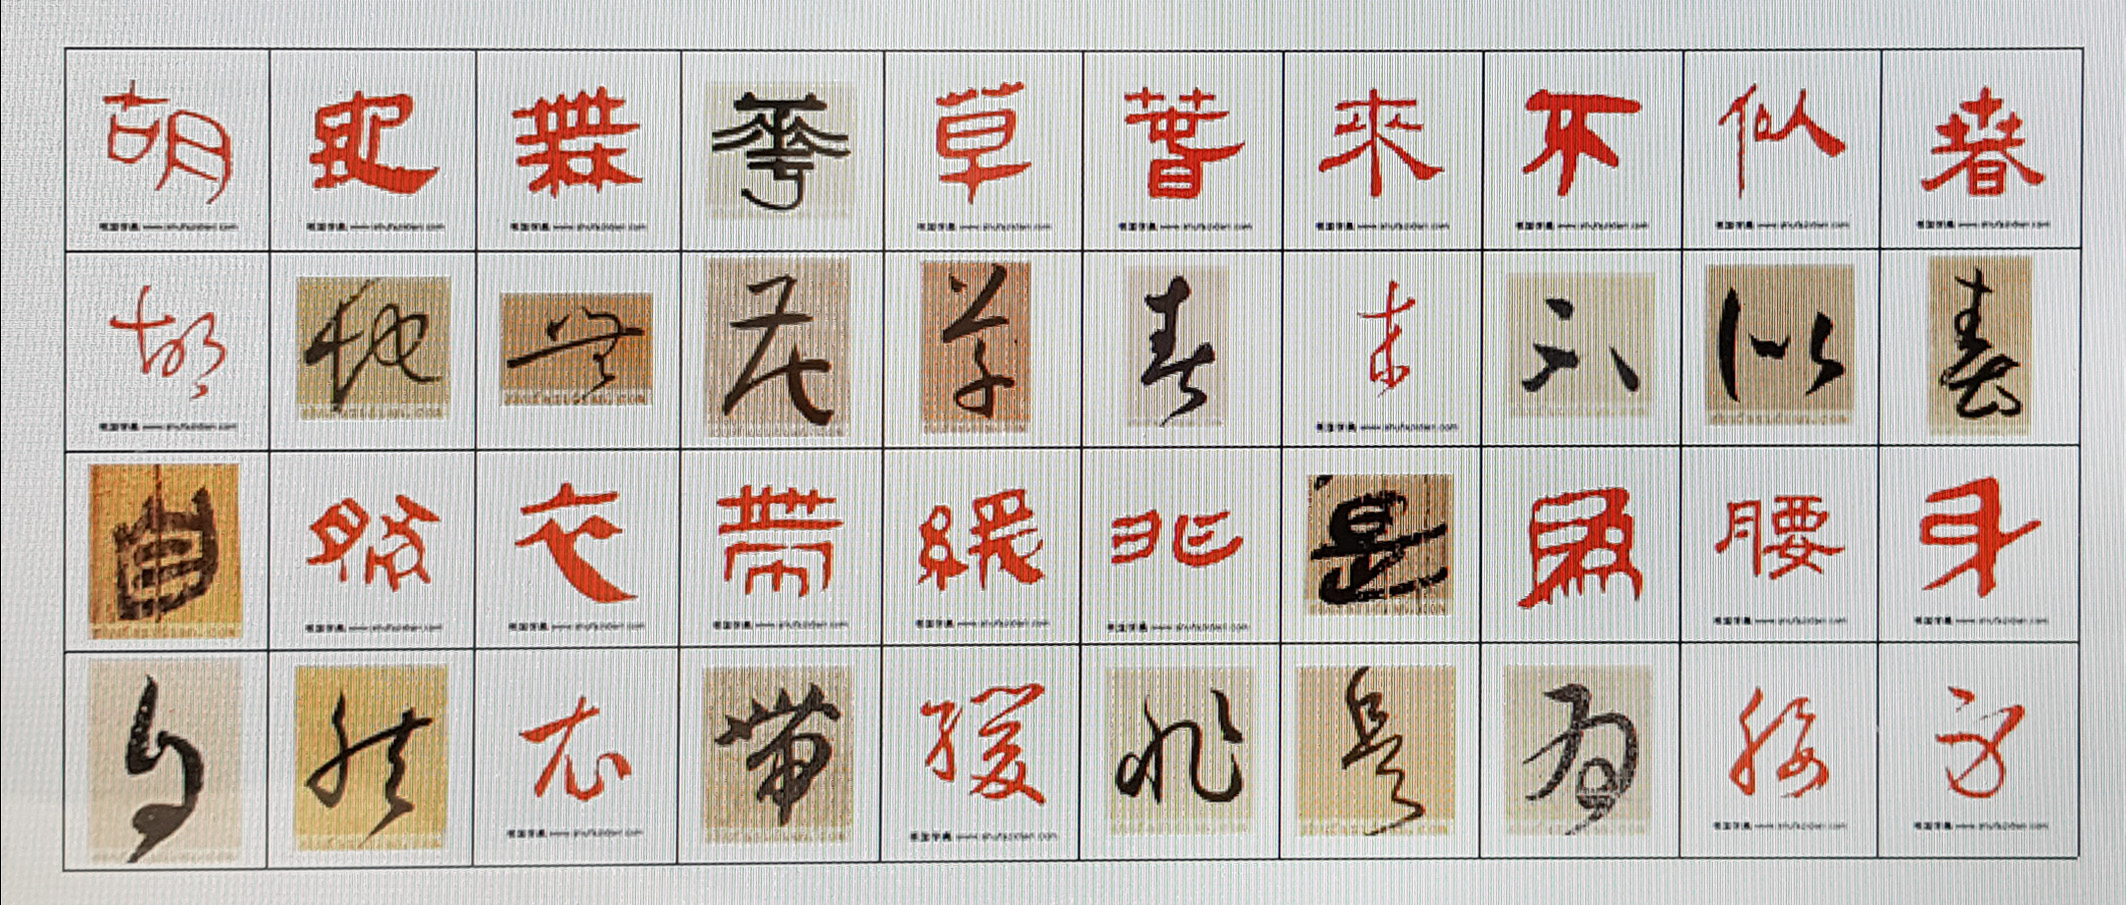 胡地無華草春來不似春
胡地無花草春來不似春
自然衣帶緩非是為腰身
自然衣帶緩非是為腰身